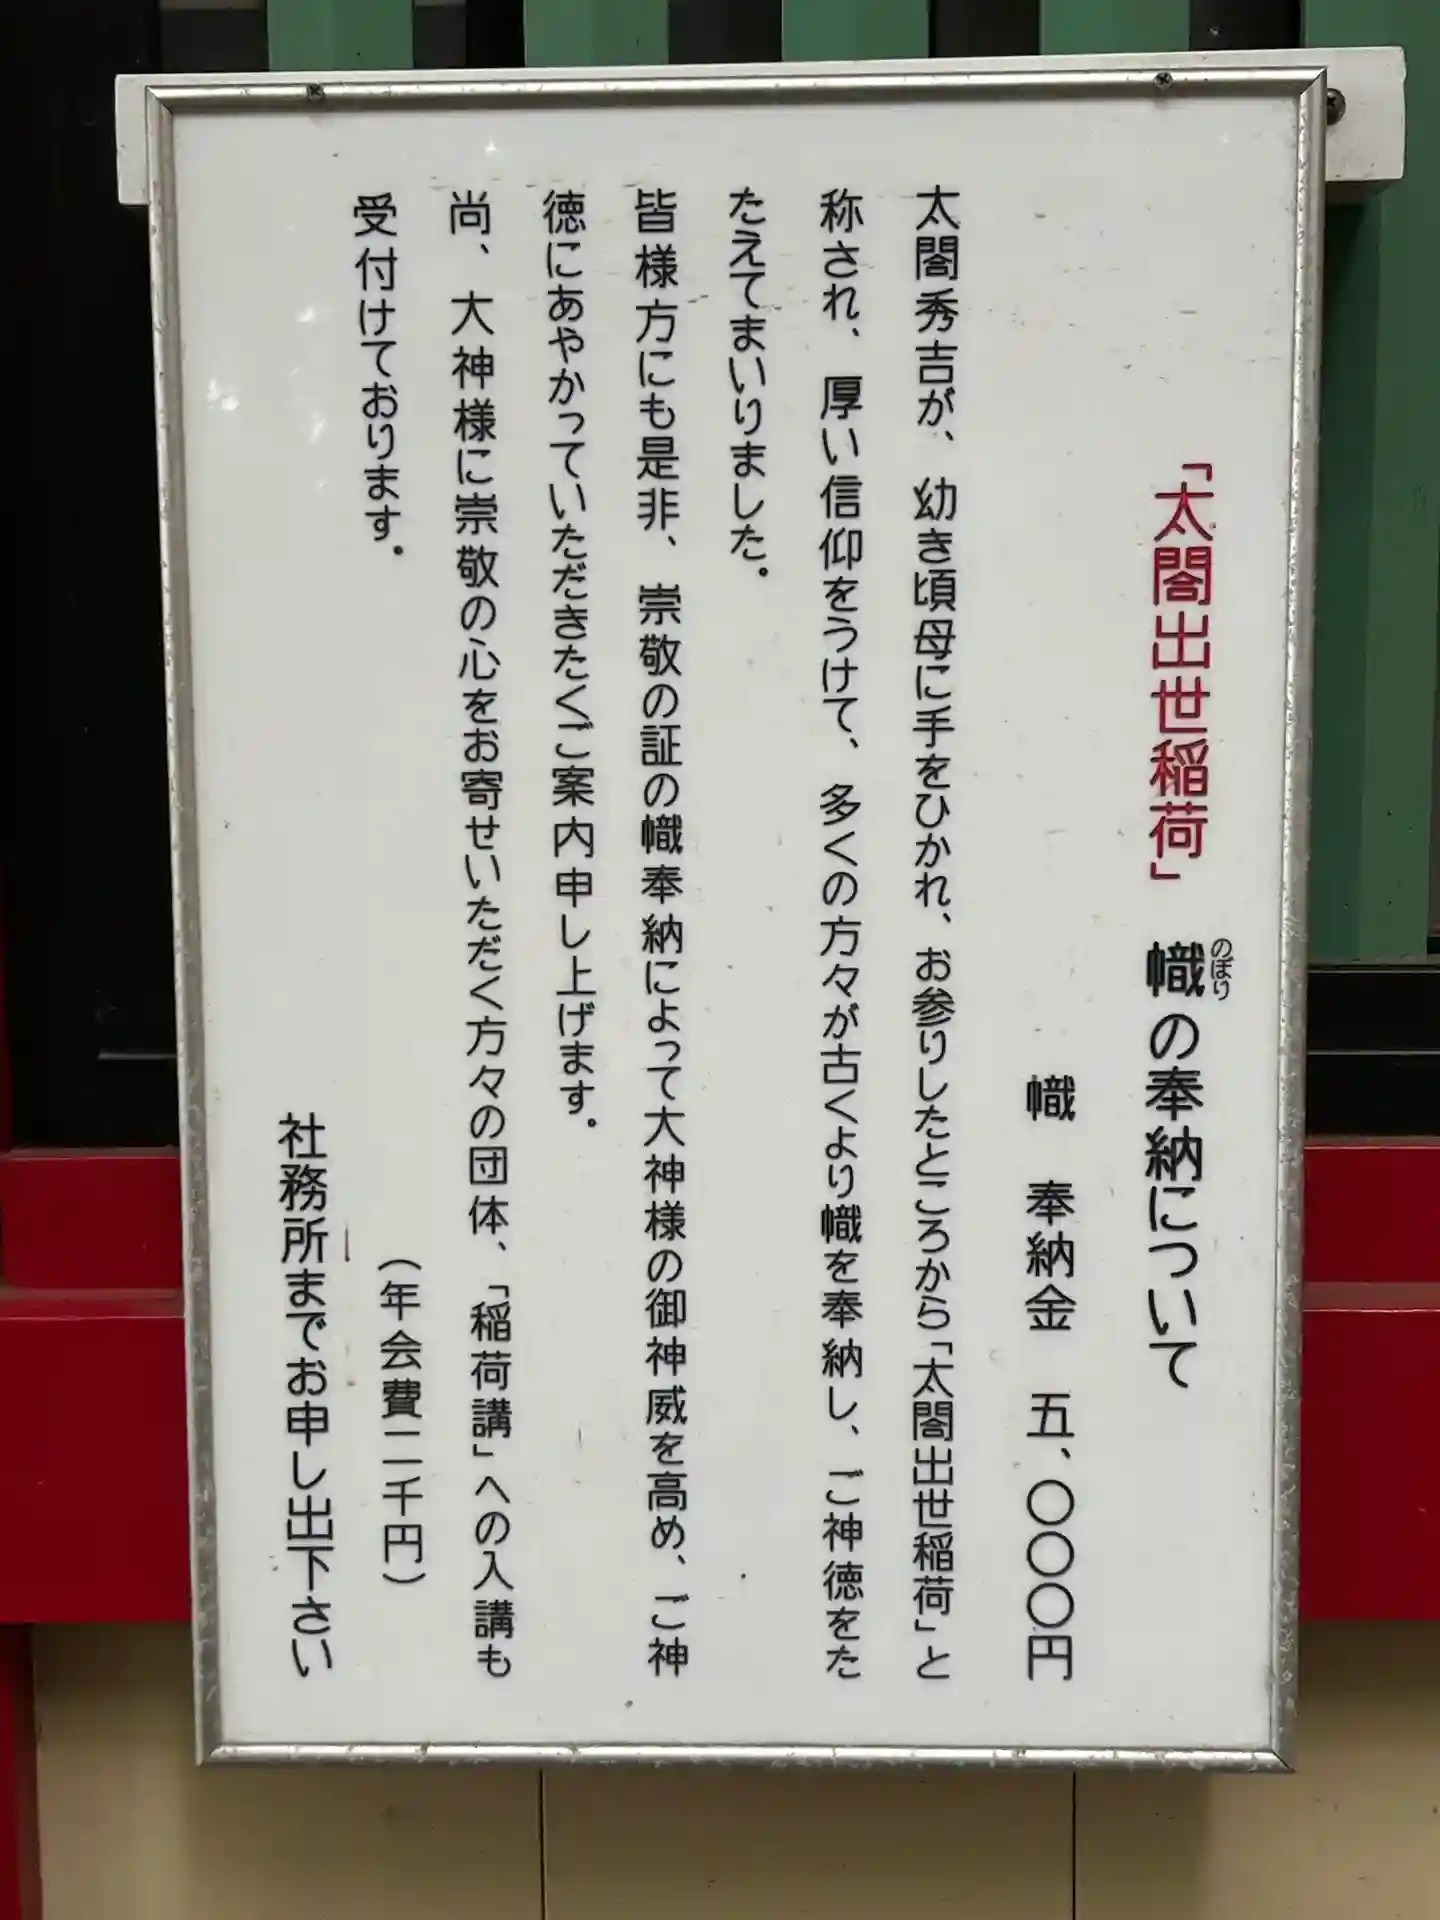 「太閤出世稲荷」 幟の奉納について
のぼり
幟 奉納金 五、〇〇〇円
太閤秀吉が、幼き頃母に手をひかれ、お参りしたところから「太閤出世稲荷」と
称され、厚い信仰をうけて、多くの方々が古くより幟を奉納し、ご神徳をた
たえてまいりました。
皆様方にも是非、崇敬の証の幟奉納によって大神様の御神威を高め、ご神
徳にあやかっていただきたくご案内申し上げます。
尚、大神様に崇敬の心をお寄せいただく方々の団体、「稲荷講」への入講も
受付けております。
（年会費二千円）
社務所までお申し出下さい